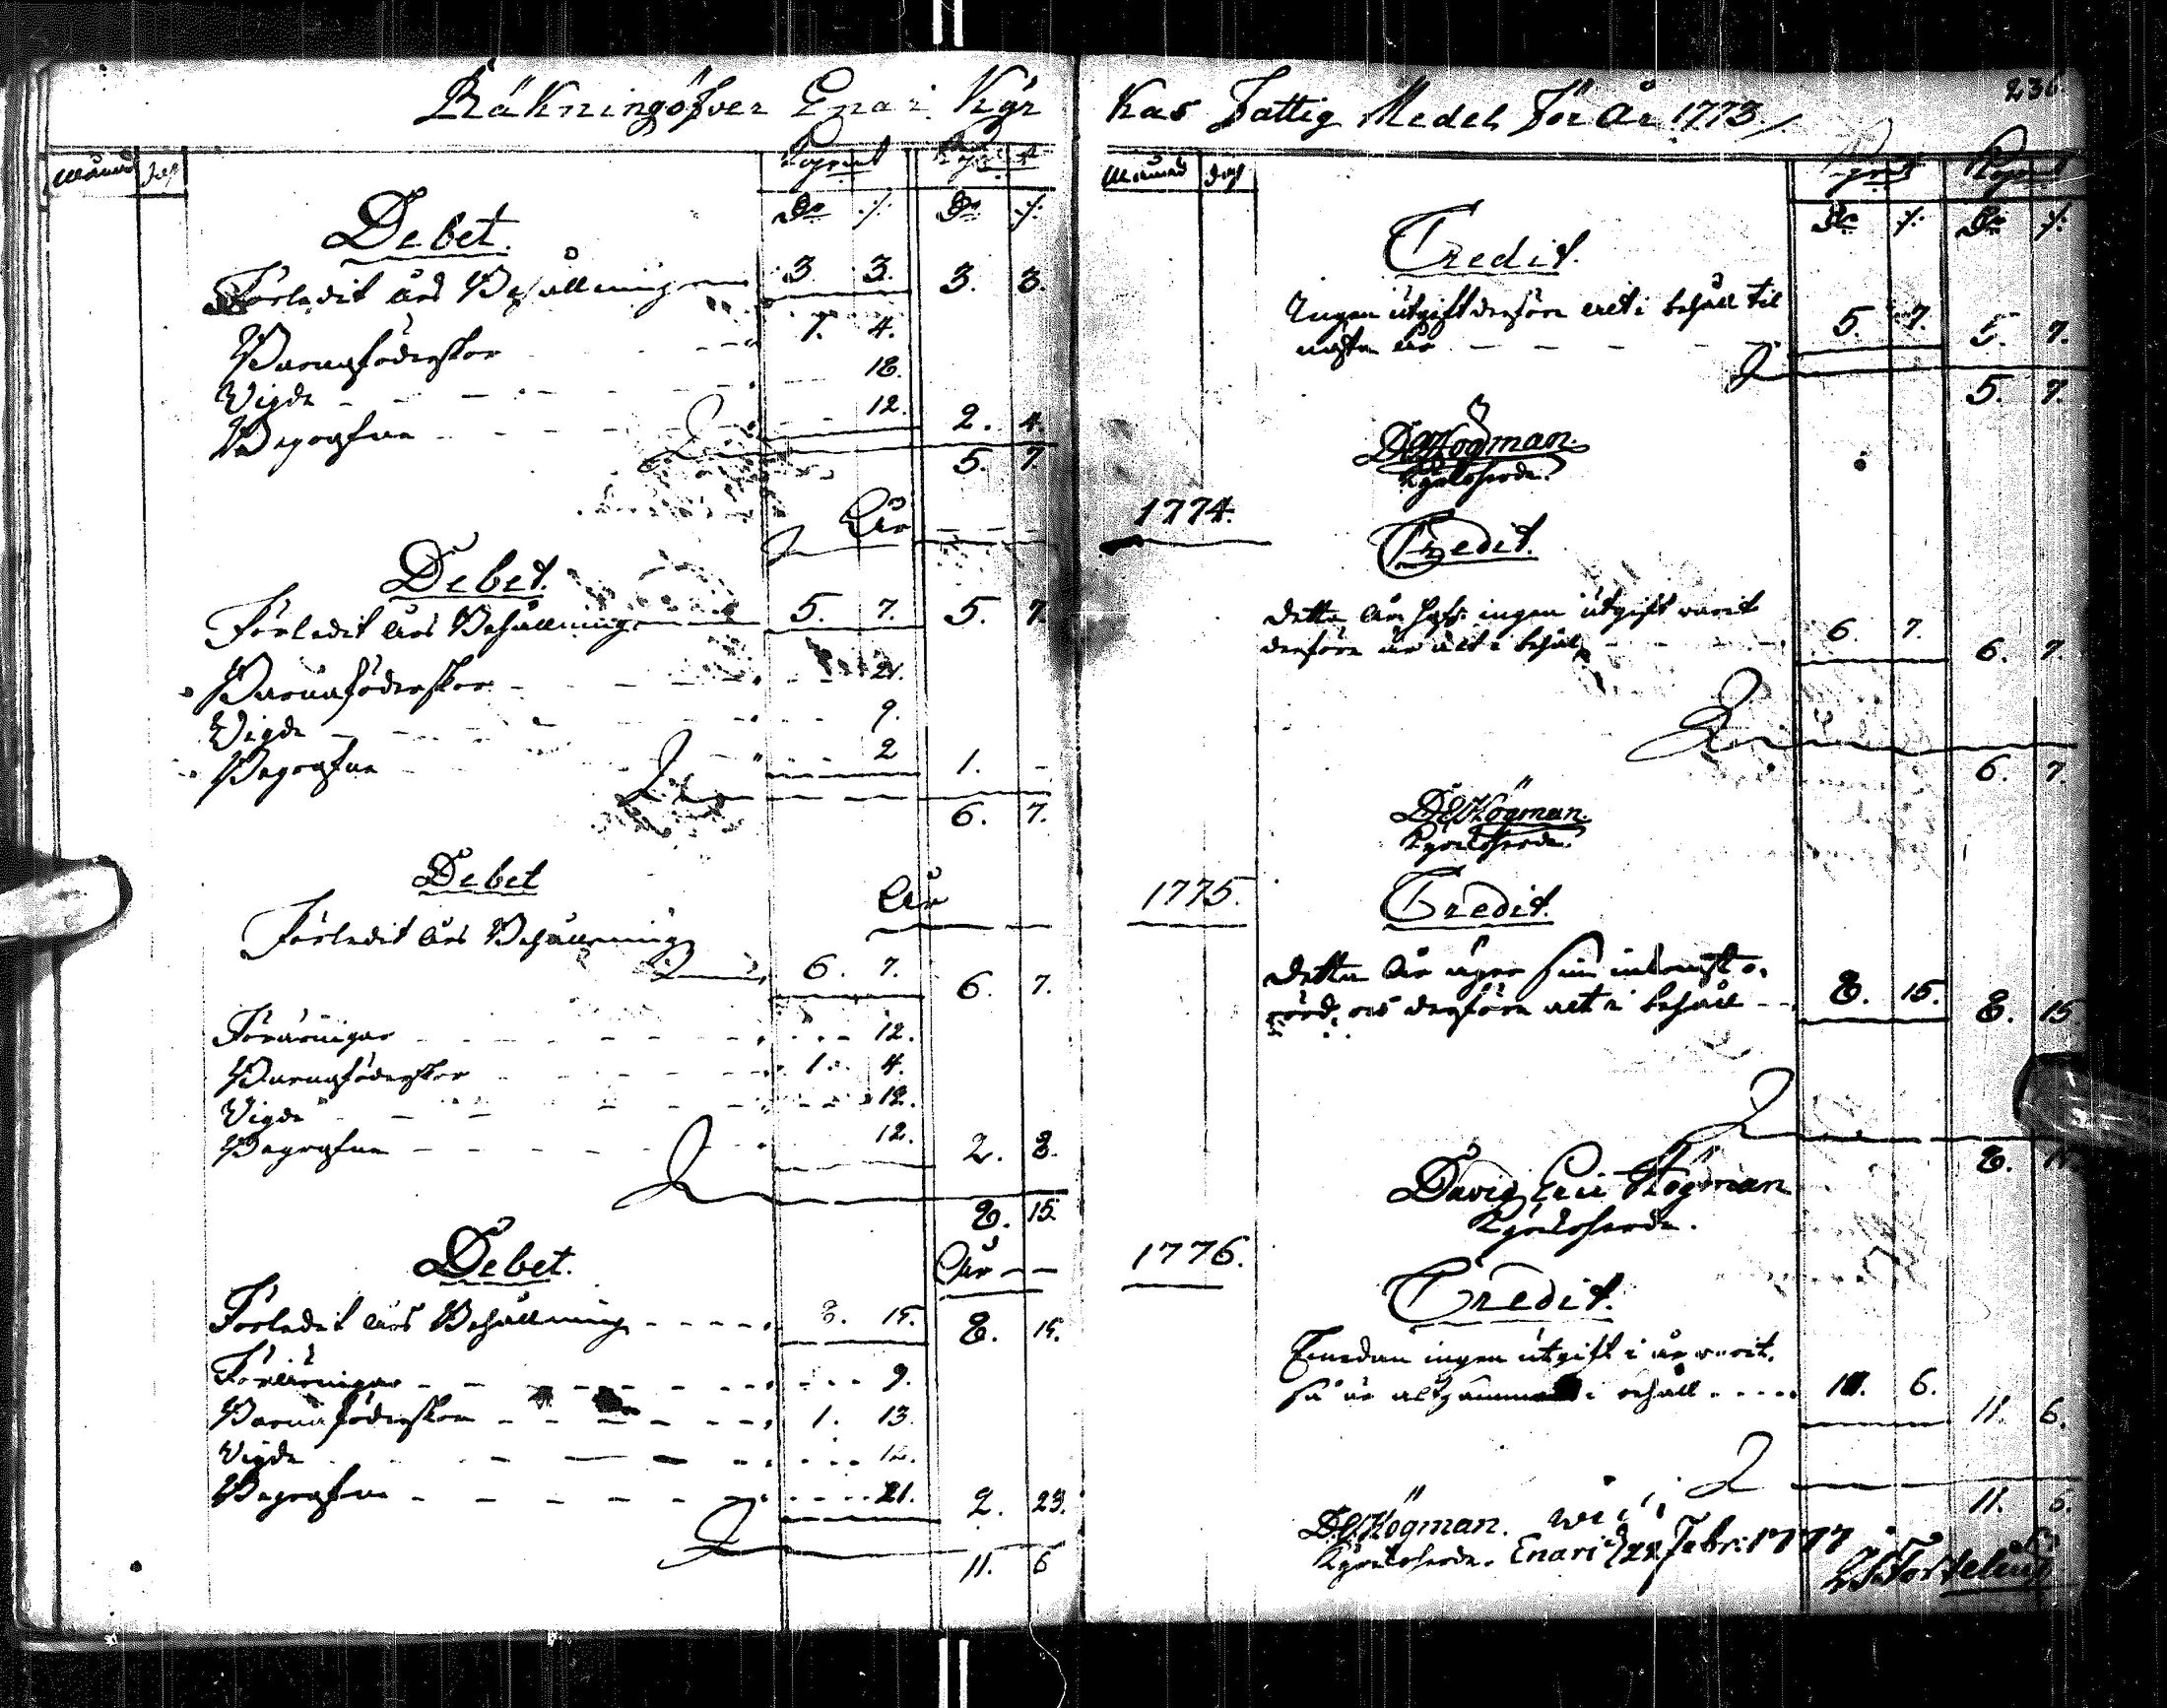 Räkning öfver Enari Kyr
Månad dag
Debet.
Dr /.
Dr /.
Förledit års Behållning 3. 3. 3. 3.
Barnaföderskor 1. 4.
Vigde 18.
Begrafne 12. 2. 4.
5. 7.
År
Debet.
Förledit års Behållning 5. 7. 5. 7.
Barnaföderskor 21.
Vigde 9.
Begrafne 2 1. -
6. 7.
Debet
År
Förledit års Behållning
6. 7. 6. 7.
Föräringar 12.
Barnaföderskor 1. 4.
Vigde 12.
Begrafne 12. 2. 8.
8. 15.
Debet.
År
Förledit års Behållning 8. 15. 8. 15.
Föräringar 9.
Barnaföderskor 1. 13.
Vigde 12.
Begrafne 21. 2. 23.
11. 6
236.
kas Fattig Medel För År 1773.
Månad dag
Dr /. Dr /.
Credit.
Ingen utgift derföre alt i behåll til
nästa år 5. 7. 5. 7.
5. 7.
DE Högman.
Kyrkoherde.
1774.
Credit.
Detta år hafr ingen utgift varit
derföre är alt i behåll 6. 7. 6. 7.
6. 7.
DE Högman.
Kyrkoherde.
1775.
Credit.
Detta år äfven sin inkomst o-
rörd, och derföre alt i behåll 8. 15. 8. 15.
8. 15.
David Eric Högman
Kyrkoherde.
1776.
Credit.
Emedan ingen utgift i år varit.
så är altsammans i behåll 11. 6. 11. 6.
11. 6.
D.E. Högman.
Kyrkoherde. Enari d 22 Febr: 1777